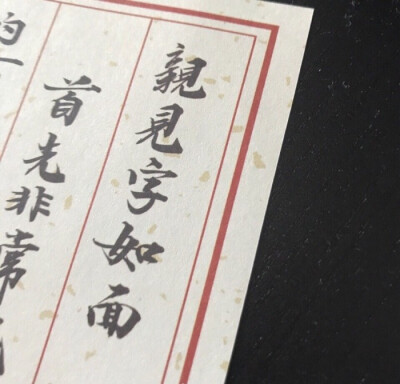 親見字如面
首先非常
的